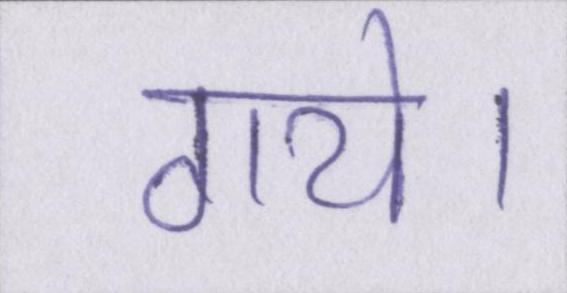 गये।